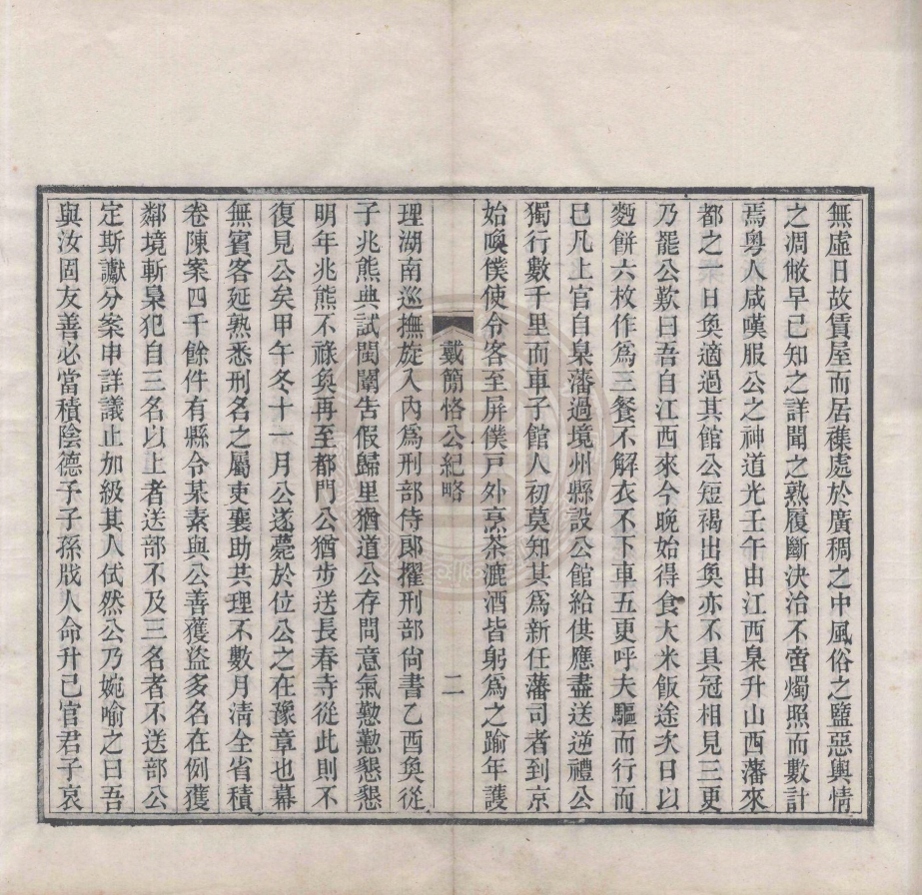 無虛日故賃屋而居襍處於廣稠之中風俗之鹽惡輿情
之凋敝早已知之詳聞之熟履斷決治不啻燭照而數計
焉粵人咸嘆服公之神道光壬午由江西臬升山西藩來
都之一日奐適過其館公短褐出奐亦不具冠相見三更
乃罷公歎曰吾自江西來今晚始得食大米飯途次日以
麪餅六枚作爲三餐不解衣不下車五更呼夫驅而行而
巳凡上官自臬藩過境州縣設公館給供應盡送逆禮公
獨行數千里而車子館人初莫知其爲新任藩司者到京
始喚僕使令客至屏僕戸外烹茶漉酒皆躬爲之踰年護
戴簡恪公紀略 二
理湖南巡撫旋入內爲刑部侍郎擢刑部尙書乙酉奐從
子兆熊典試閩闈吿假歸里猶道公存問意氣懃懃懇懇
明年兆熊不祿奐再至都門公猶步送長春寺從此則不
復見公矣甲午冬十一月公遂薨於位公之在豫章也幕
無賓客延熟悉刑名之屬吏襄助共理不數月淸全省積
卷陳案四千餘件有縣令某素與公善獲盜多名在例獲
鄰境斬梟犯自三名以上者送部不及三名者不送部公
定斯讞分案申詳議止加級其人怃然公乃婉喻之曰吾
與汝固友善必當積陰德予子孫戕人命升己官君子哀